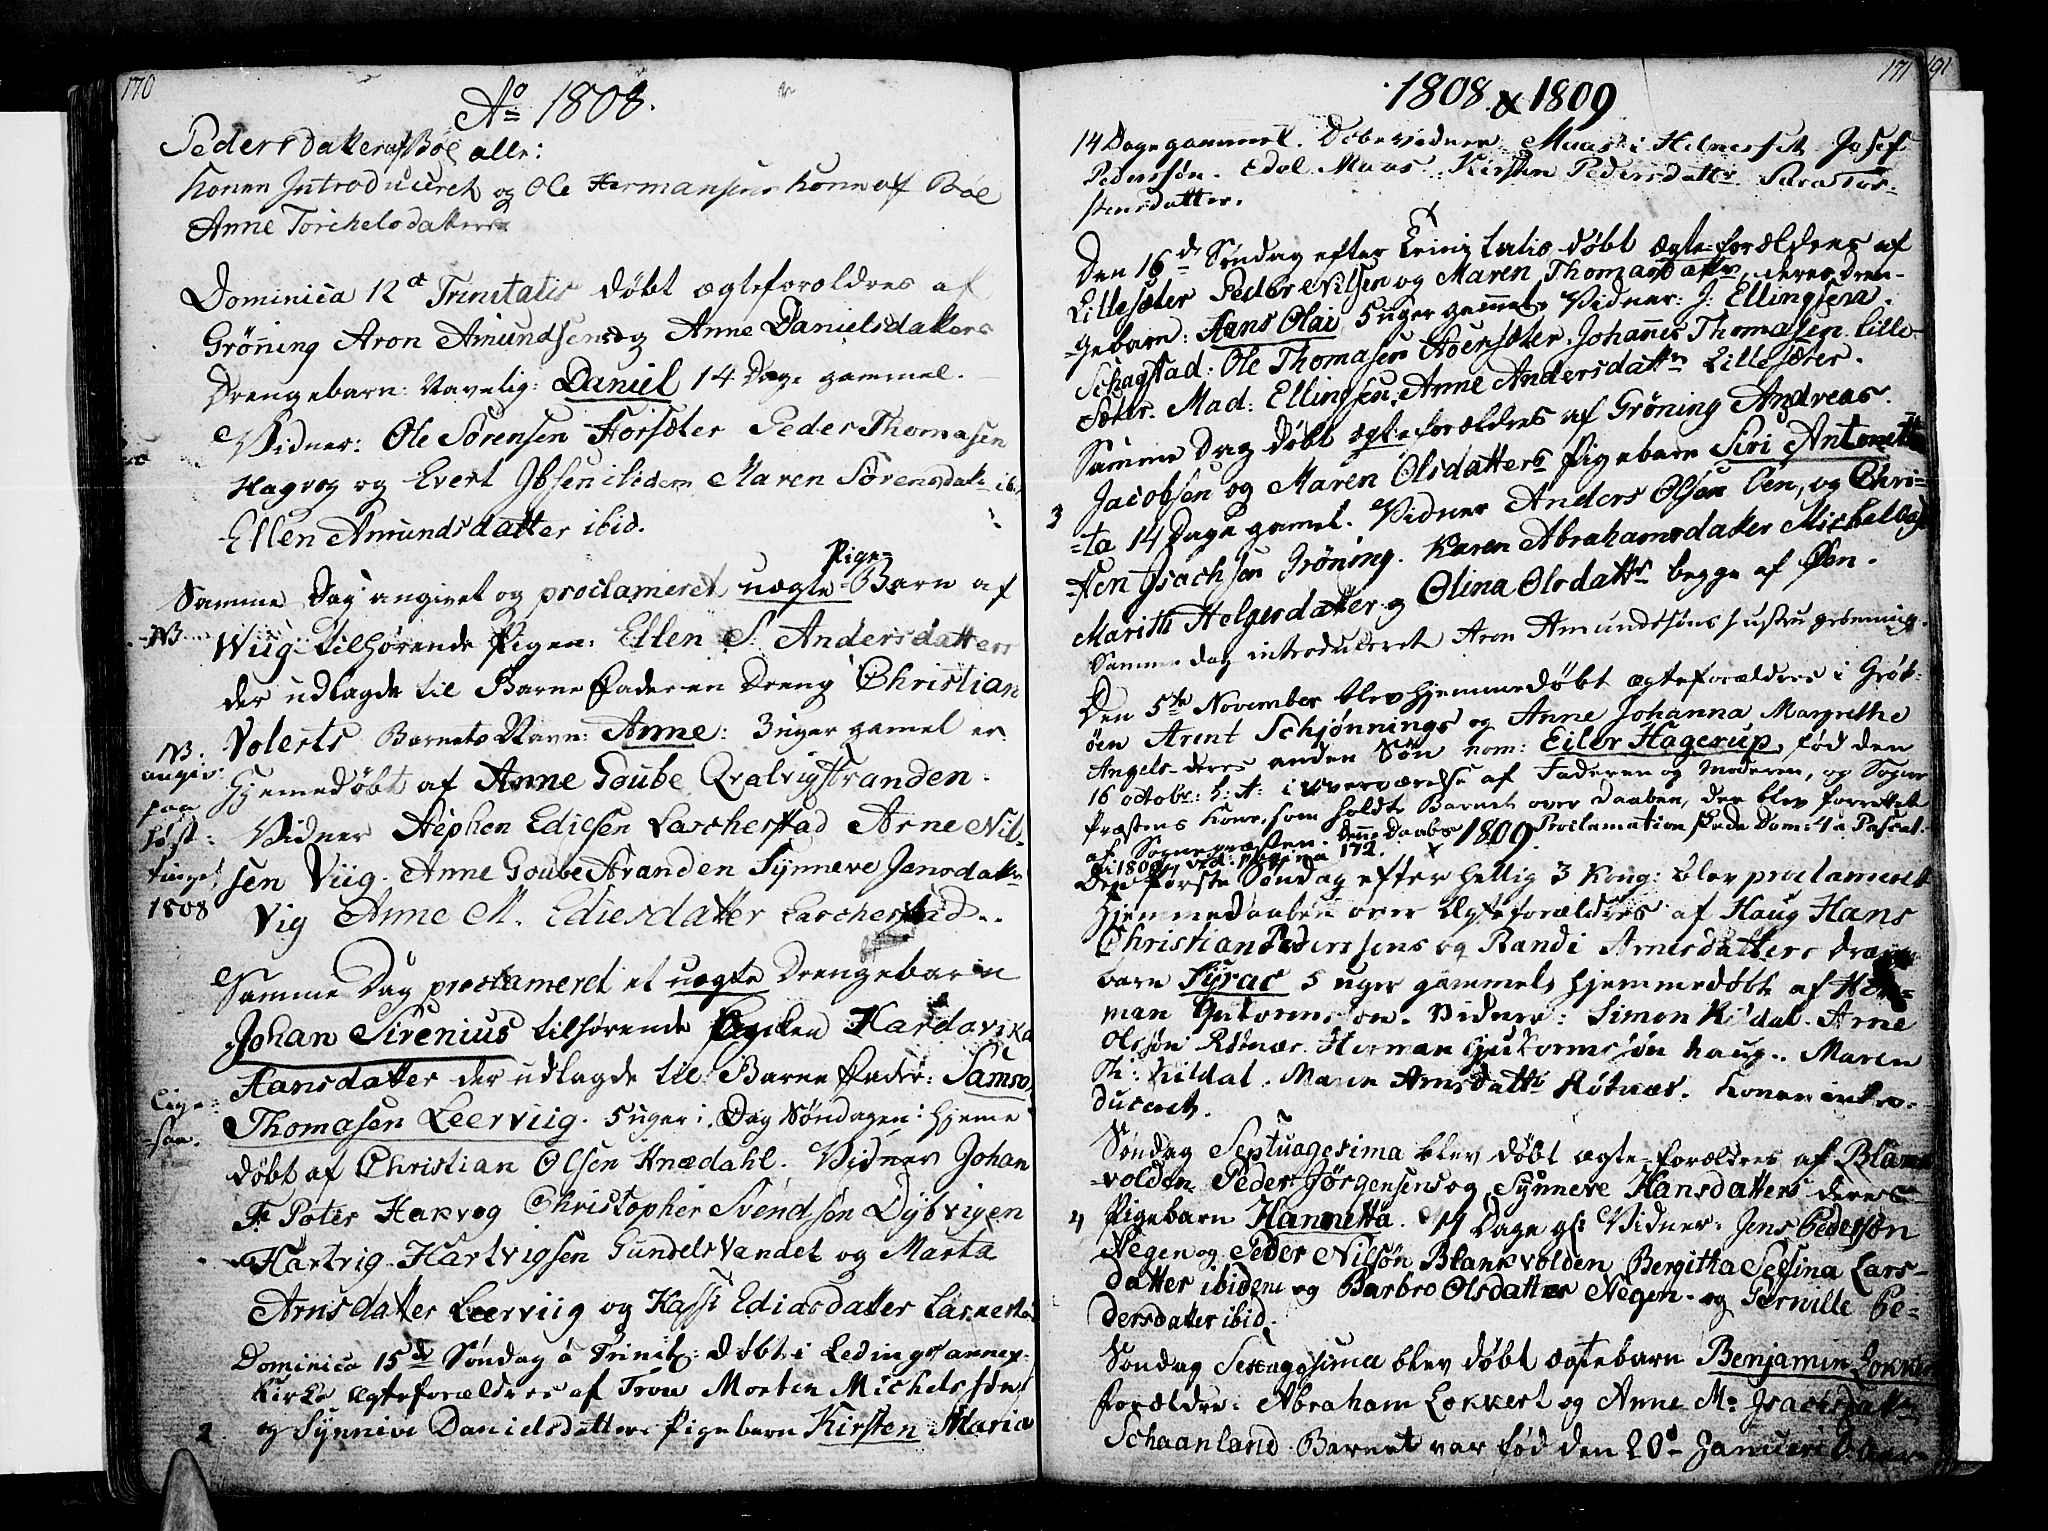 170
Ao 1808.
Pedersdatter af Böe alle:
Konen Introduceret og Ole Hermansens Kone af Böe
Anne Torchelsdatter
Dominica 12a Trinitatis döbt ægteforældres af
Gröning Aron Amundsens og Anne Danielsdatters
Drengebarn: Navnlig: Daniel 14 Dage gammel.
Vidner: Ole Sörensen Forsæter Peder Thomasen
Hagvog og Evert Ibsen ibidem Maren Sörensdatt: ib.
Ellen Amundsdatter ibid.
Pige-
Samme Dag angivet og proclameret uægte Barn af
NB
Wiig tilhörende Pigen: Ellen S. Andersdatters
der udlagde til Barne Fader en Dreng Christian
Volerts Barnets Navn: Anne: 3 uger gamel er
NB.
angiv:
paa
höst:
tinget
1808
Hjemedöbt af Anne Goube Qvalvigstranden.
Vidner Stephen Ediesen Larcherstad Arne Nil-
sen Viig. Anne Goube Stranden Synneve Jensdatt:
Vig Anne M. Ediesdatter Larcherstad.
Samme Dag proclameret et uægte Drengebarn
Johan Sirenius tilhörende Pigen Hardovika
Hansdatter der udlagde til Barne Fader: Samso
Lige-
saa.
Thomasen Leerviig. 5 uger i Dag Söndagen: hjeme
döbt af Christian Olsen Knædahl. Vidner Johan
F. Peter Hakvog Christopher Svendsön Dybvigen
Hartvig Hartvigsen Gundelsvandet og Marta
Arnsdatter Leerviig og Kassi Ediasdatter Larkersta
Dominica 15de Söndag a Trinit: döbt i Ledings annex-
Kirke ægteforældres af Trou Morten Michelssön
2
og Synnive Danielsdatters Pigebarn Kirsten Maria
171
191
1808 & 1809
14 Dage gammel. Döbevidner Maas i Helnesset Josef
Pedersön. Edel Maas. Kirsten Pedersdattr Sara Tor-
stensdatter.
Den 16de Söndag efter Trinitatis döbt ægte-forældres af
Lillesæter Peder Nilsen og Maren Thomasdattrs, deres Dren-
gebarn: Hans Olai, 5 uger gammel. Vidner: J: Ellingsen.
Schagstad: Ole Thomasen Aversæter. Johannes Thomasen. Lille-
sæter. Mad: Ellingsen, Anne Andersdattr Lillesæter.
Samme Dag döbt ægteforældres af Gröning Andreas.
Jacobsen og Maren Olsdatters Pigebarn Siri Antonett
3
-ta 14 Dage gamel. Vidner Anders Olsen Öen, og Chri-
-sten Isachsen Gröning. Karen Abrahamsdatter Michelbost
Marith Helgesdatter og Olina Olsdattr begge af Öen.
Samme dag introduceret Aron Amundssöns hustru grönning.
Den 5te November blev hjemmedöbt ægteforældres i Gröt-
öen Arent Schjönnings og Anne Johanna Margrethe
Angels- deres anden Sön nom: Eiler Hagerup, föd den
16 octobr: h: A: i overværelse af Faderen og Moderen, og Sogne
Præstens Kone, som holdt Barnet over Daaben, der blev forrettet
af Sognepræsten. denne Daabs Proclamation skede Dom: 4a Pascat.
Ai 1809, vid: pagina 172. x 1809.
Den förste Söndag efter Hellig 3 Kong: blev proclameret
Hjemmedaaben over ægteforældres af Haug Hans
Christian Pederssens og Randi Arnesdatters Drænge-
barn Syrac 5 uger gammel, hjemmedöbt af Her-
man Guttormssön. Vidner: Simon Kildal. Arne
Olssön Rötnæs. Herman Guttormssön haug. Maren
Si: Kildal. Maren Arnsdattr Rötnæs. Konen intro-
duceret.
Söndag Septuagesima blev döbt ægte-forældres af Blank
volden Peder Jörgensens og Synneve Hansdatters deres
4
Pigebarn Hannetta. 14 Dage gl: Vidner: Jens Pedersön
Negen og Peder Nilsön Blankvolden Bergitta Sesina Lars-
datter ibidem og Barbro Olsdatter Negen. og Gerville Pe-
dersdatter ibid.
Söndag Sexagesima blev döbt ægtebarn Benjamin Lokkert
forældre: Abraham Lokkert og Anne M: Isachsdatter
Schaanland. Barnet var föd den 20de Januarii